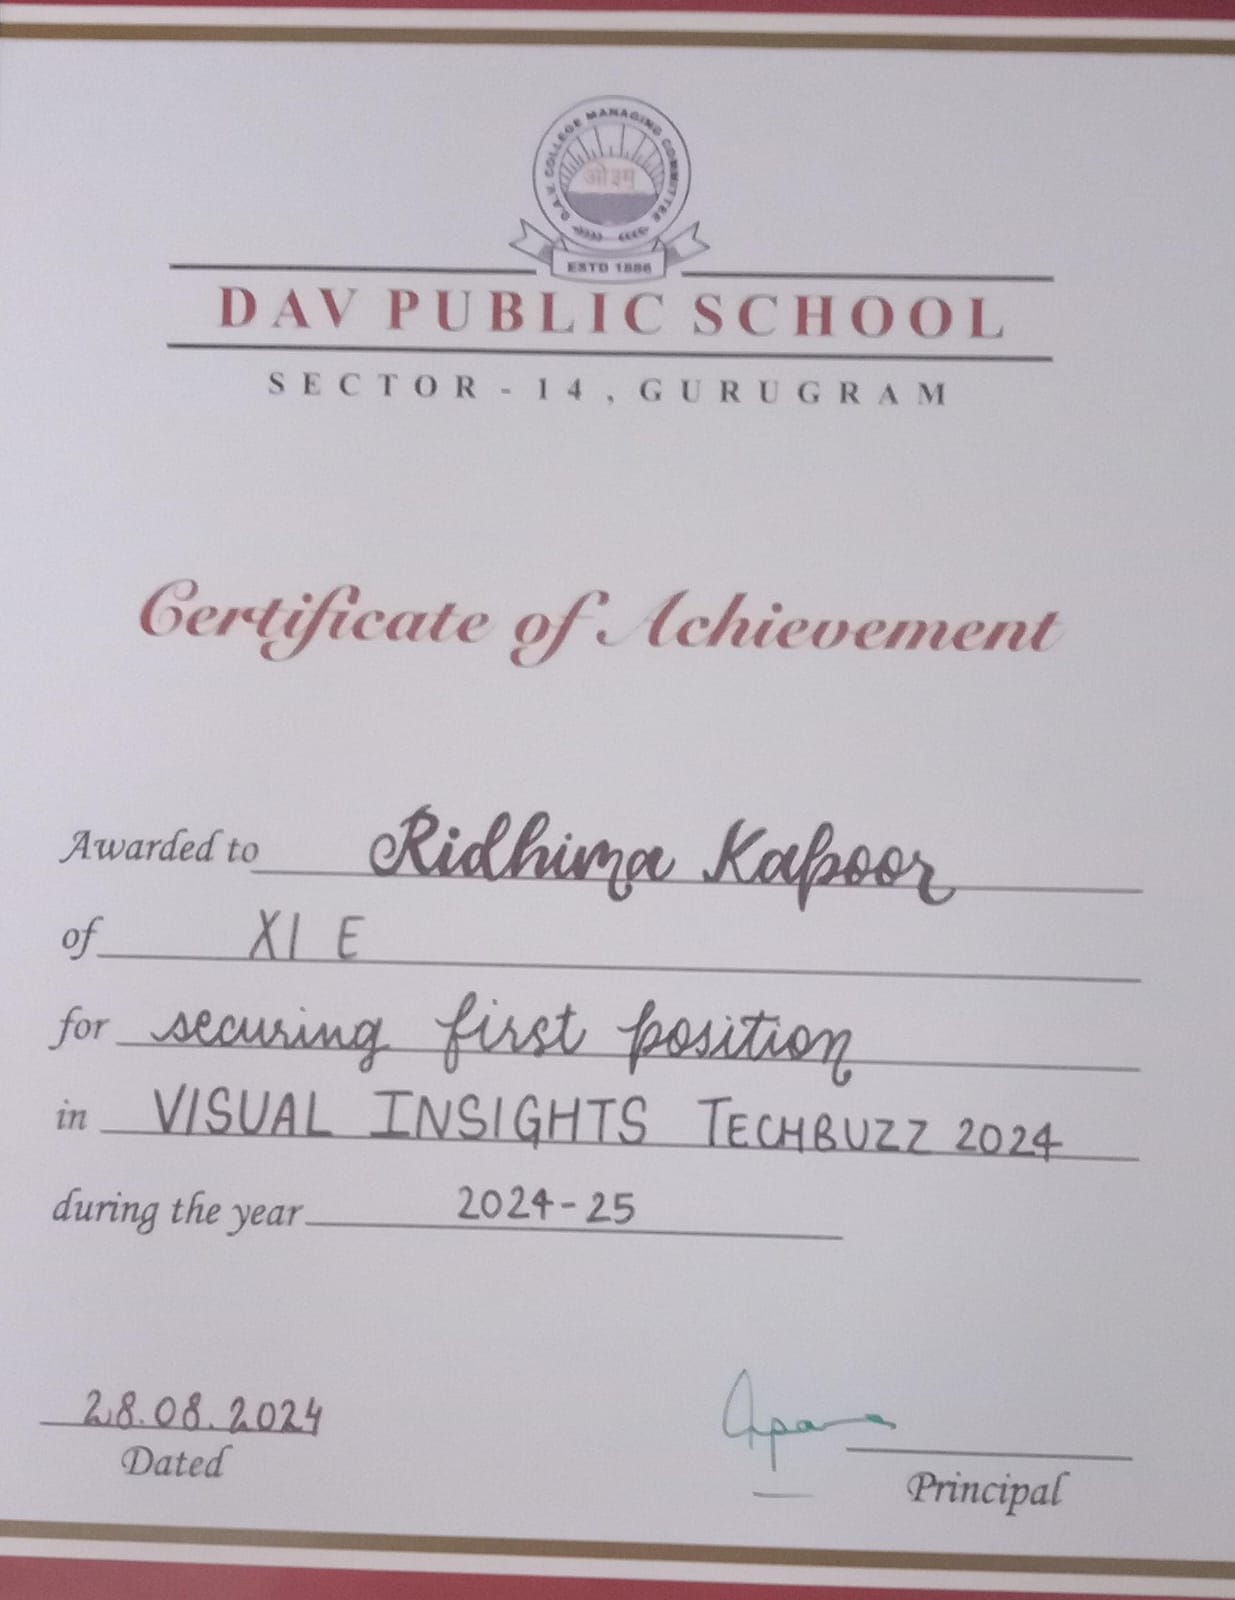 D.A.V. COLLEGE MANAGING COMMITTEE
ओ३म्
ESTD 1886
DAV PUBLIC SCHOOL
SECTOR - 14, GURUGRAM
Certificate of Achievement
Awarded to Ridhima Kapoor
of XI E
for securing first position
in VISUAL INSIGHTS TECHBUZZ 2024
during the year 2024-25
28.08.2024
Dated
Principal